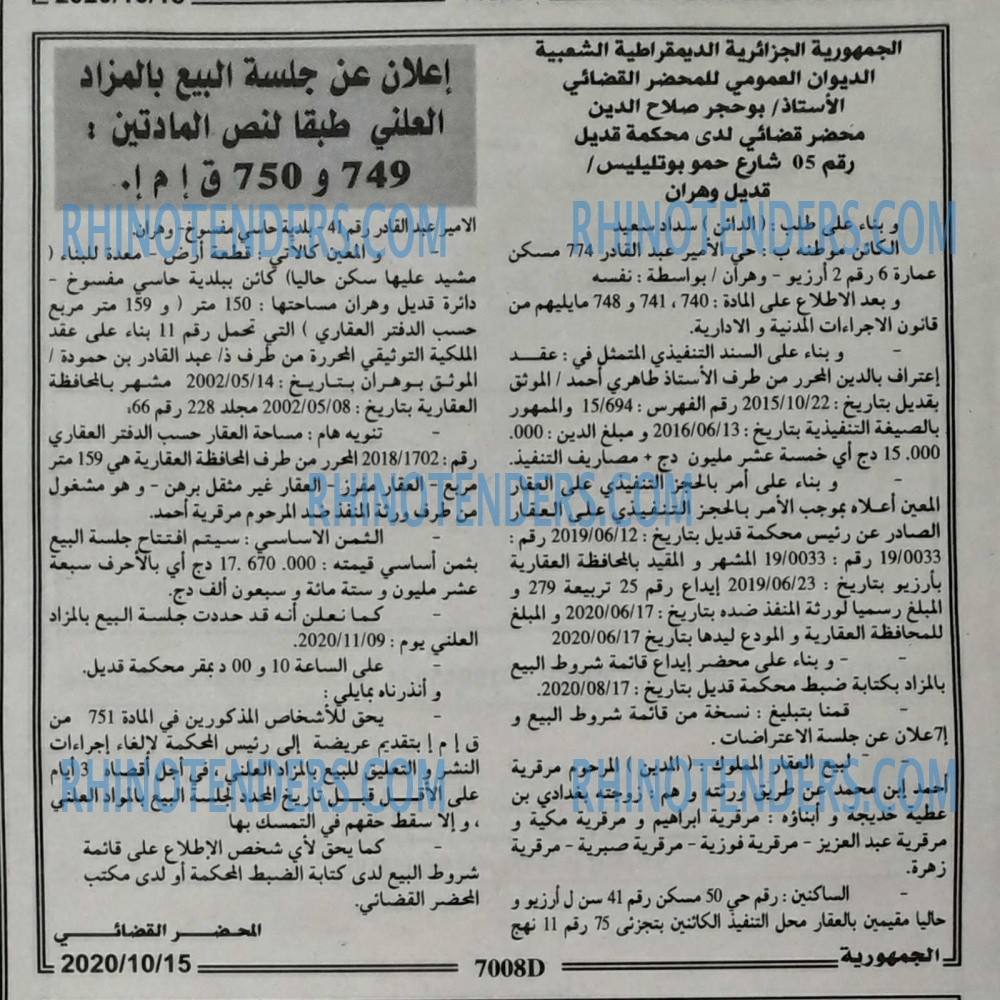 الجمهورية الجزائرية الديمقراطية الشعبية
الديوان العمومي للمحضر القضائي
الأستاذ/ بوحجر صلاح الدين
محضر قضائي لدى محكمة قديل
رقم 05 شارع حمو بوتليليس/
قديل وهران
و بناء على طلب : ( الدائن ) سداد سعيد
الكائن موطنه ب : حي الأمير عبد القادر 774 مسكن
عمارة 6 رقم 2 أرزيو - وهران / بواسطة : نفسه
و بعد الاطلاع على المادة : 740 ، 741 و 748 مايليهم من
قانون الاجراءات المدنية و الادارية.
- و بناء على السند التنفيذي المتمثل في : عقد
إعتراف بالدين المحرر من طرف الأستاذ طاهري أحمد / الموثق
بقديل بتاريخ : 2015/10/22 رقم الفهرس : 15/694 والممهور
بالصيغة التنفيذية بتاريخ : 2016/06/13 و مبلغ الدين : 000.
000. 15 دج أي خمسة عشر مليون دج + مصاريف التنفيذ.
- و بناء على أمر بالحجز التنفيذي على العقار
المعين أعلاه بموجب الأمر بالحجز التنفيذي على العقار
الصادر عن رئيس محكمة قديل بتاريخ : 2019/06/12 رقم :
19/0033 رقم : 19/0033 المشهر و المقيد بالمحافظة العقارية
بأرزيو بتاريخ : 2019/06/23 إيداع رقم 25 تربيعة 279 و
المبلغ رسميا لورثة المنفذ ضده بتاريخ : 2020/06/17 و المبلغ
للمحافظة العقارية و المودع ليدها بتاريخ 2020/06/17
- - و بناء على محضر إيداع قائمة شروط البيع
بالمزاد بكتابة ضبط محكمة قديل بتاريخ : 2020/08/17.
- قمنا بتبليغ : نسخة من قائمة شروط البيع و
إ7علان عن جلسة الاعتراضات .
- لبيع العقار المملوك - ( المدين ) المرحوم مرقرية
أحمد إبن محمد عن طريق ورثته و هم : زوجته بغدادي بن
عطية خديجة و أبناؤه : مرقرية ابراهيم و مرقرية مكية و
مرقرية عبد العزيز - مرقرية فوزية - مرقرية صبرية - مرقرية
زهرة.
- الساكنين : رقم حي 50 مسكن رقم 41 سن ل أرزيو و
حاليا مقيمين بالعقار محل التنفيذ الكائنين بتجزئى 75 رقم 11 نهج
إعلان عن جلسة البيع بالمزاد
العلني طبقا لنص المادتين :
749 و 750 ق إ م إ.
الامير عبد القادر رقم 41 بلدية حاسي مفسوخ - وهران.
- و المعين كالآتي : قطعة أرض - معدة للبناء (
مشيد عليها سكن حاليا) كائن ببلدية حاسي مفسوخ -
دائرة قديل وهران مساحتها : 150 متر ( و 159 متر مربع
حسب الدفتر العقاري ) التي تحمل رقم 11 بناء على عقد
الملكية التوثيقي المحررة من طرف ذ/ عبد القادر بن حمودة /
الموثق بوهران بتاريخ : 2002/05/14 مشهر بالمحافظة
العقارية بتاريخ : 2002/05/08 مجلد 228 رقم 66،
- تنويه هام : مساحة العقار حسب الدفتر العقاري
رقم : 2018/1702 المحرر من طرف المحافظة العقارية هي 159 متر
مربع - العقار مفرز - العقار غير مثقل برهن - و هو مشغول
من طرف ورثة المنفذ ضد المرحوم مرقرية أحمد.
- الثمن الاساسي : سيتم افتتاح جلسة البيع
بثمن أساسي قيمته : 000. 670 .17 دج أي بالأحرف سبعة
عشر مليون و ستة مائة و سبعون ألف دج.
- كما نعلن أنه قد حددت جلسة البيع بالمزاد
العلني يوم : 2020/11/09.
- على الساعة 10 و 00 د بمقر محكمة قديل.
و أنذرناه بمايلي :
- يحق للأشخاص المذكورين في المادة 751 من
ق إ م إ بتقديم عريضة إلى رئيس المحكمة لإلغاء إجراءات
النشر و التعليق للبيع بالمزاد العلني ، في أجل أقصاه 3 أيام
على الأقل قبل تاريخ المحدد لجلسة البيع بالمزاد العلني
، و إلا سقط حقهم في التمسك بها
- كما يحق لأي شخص الإطلاع على قائمة
شروط البيع لدى كتابة الضبط المحكمة أو لدى مكتب
المحضر القضائي.
المحضر القضائي
الجمهورية
7008D
2020/10/15
RHINOTENDERS.COM
RHINOTENDERS.COM
RHINOTENDERS.COM
RHINOTENDERS.COM
RHINOTENDERS.COM